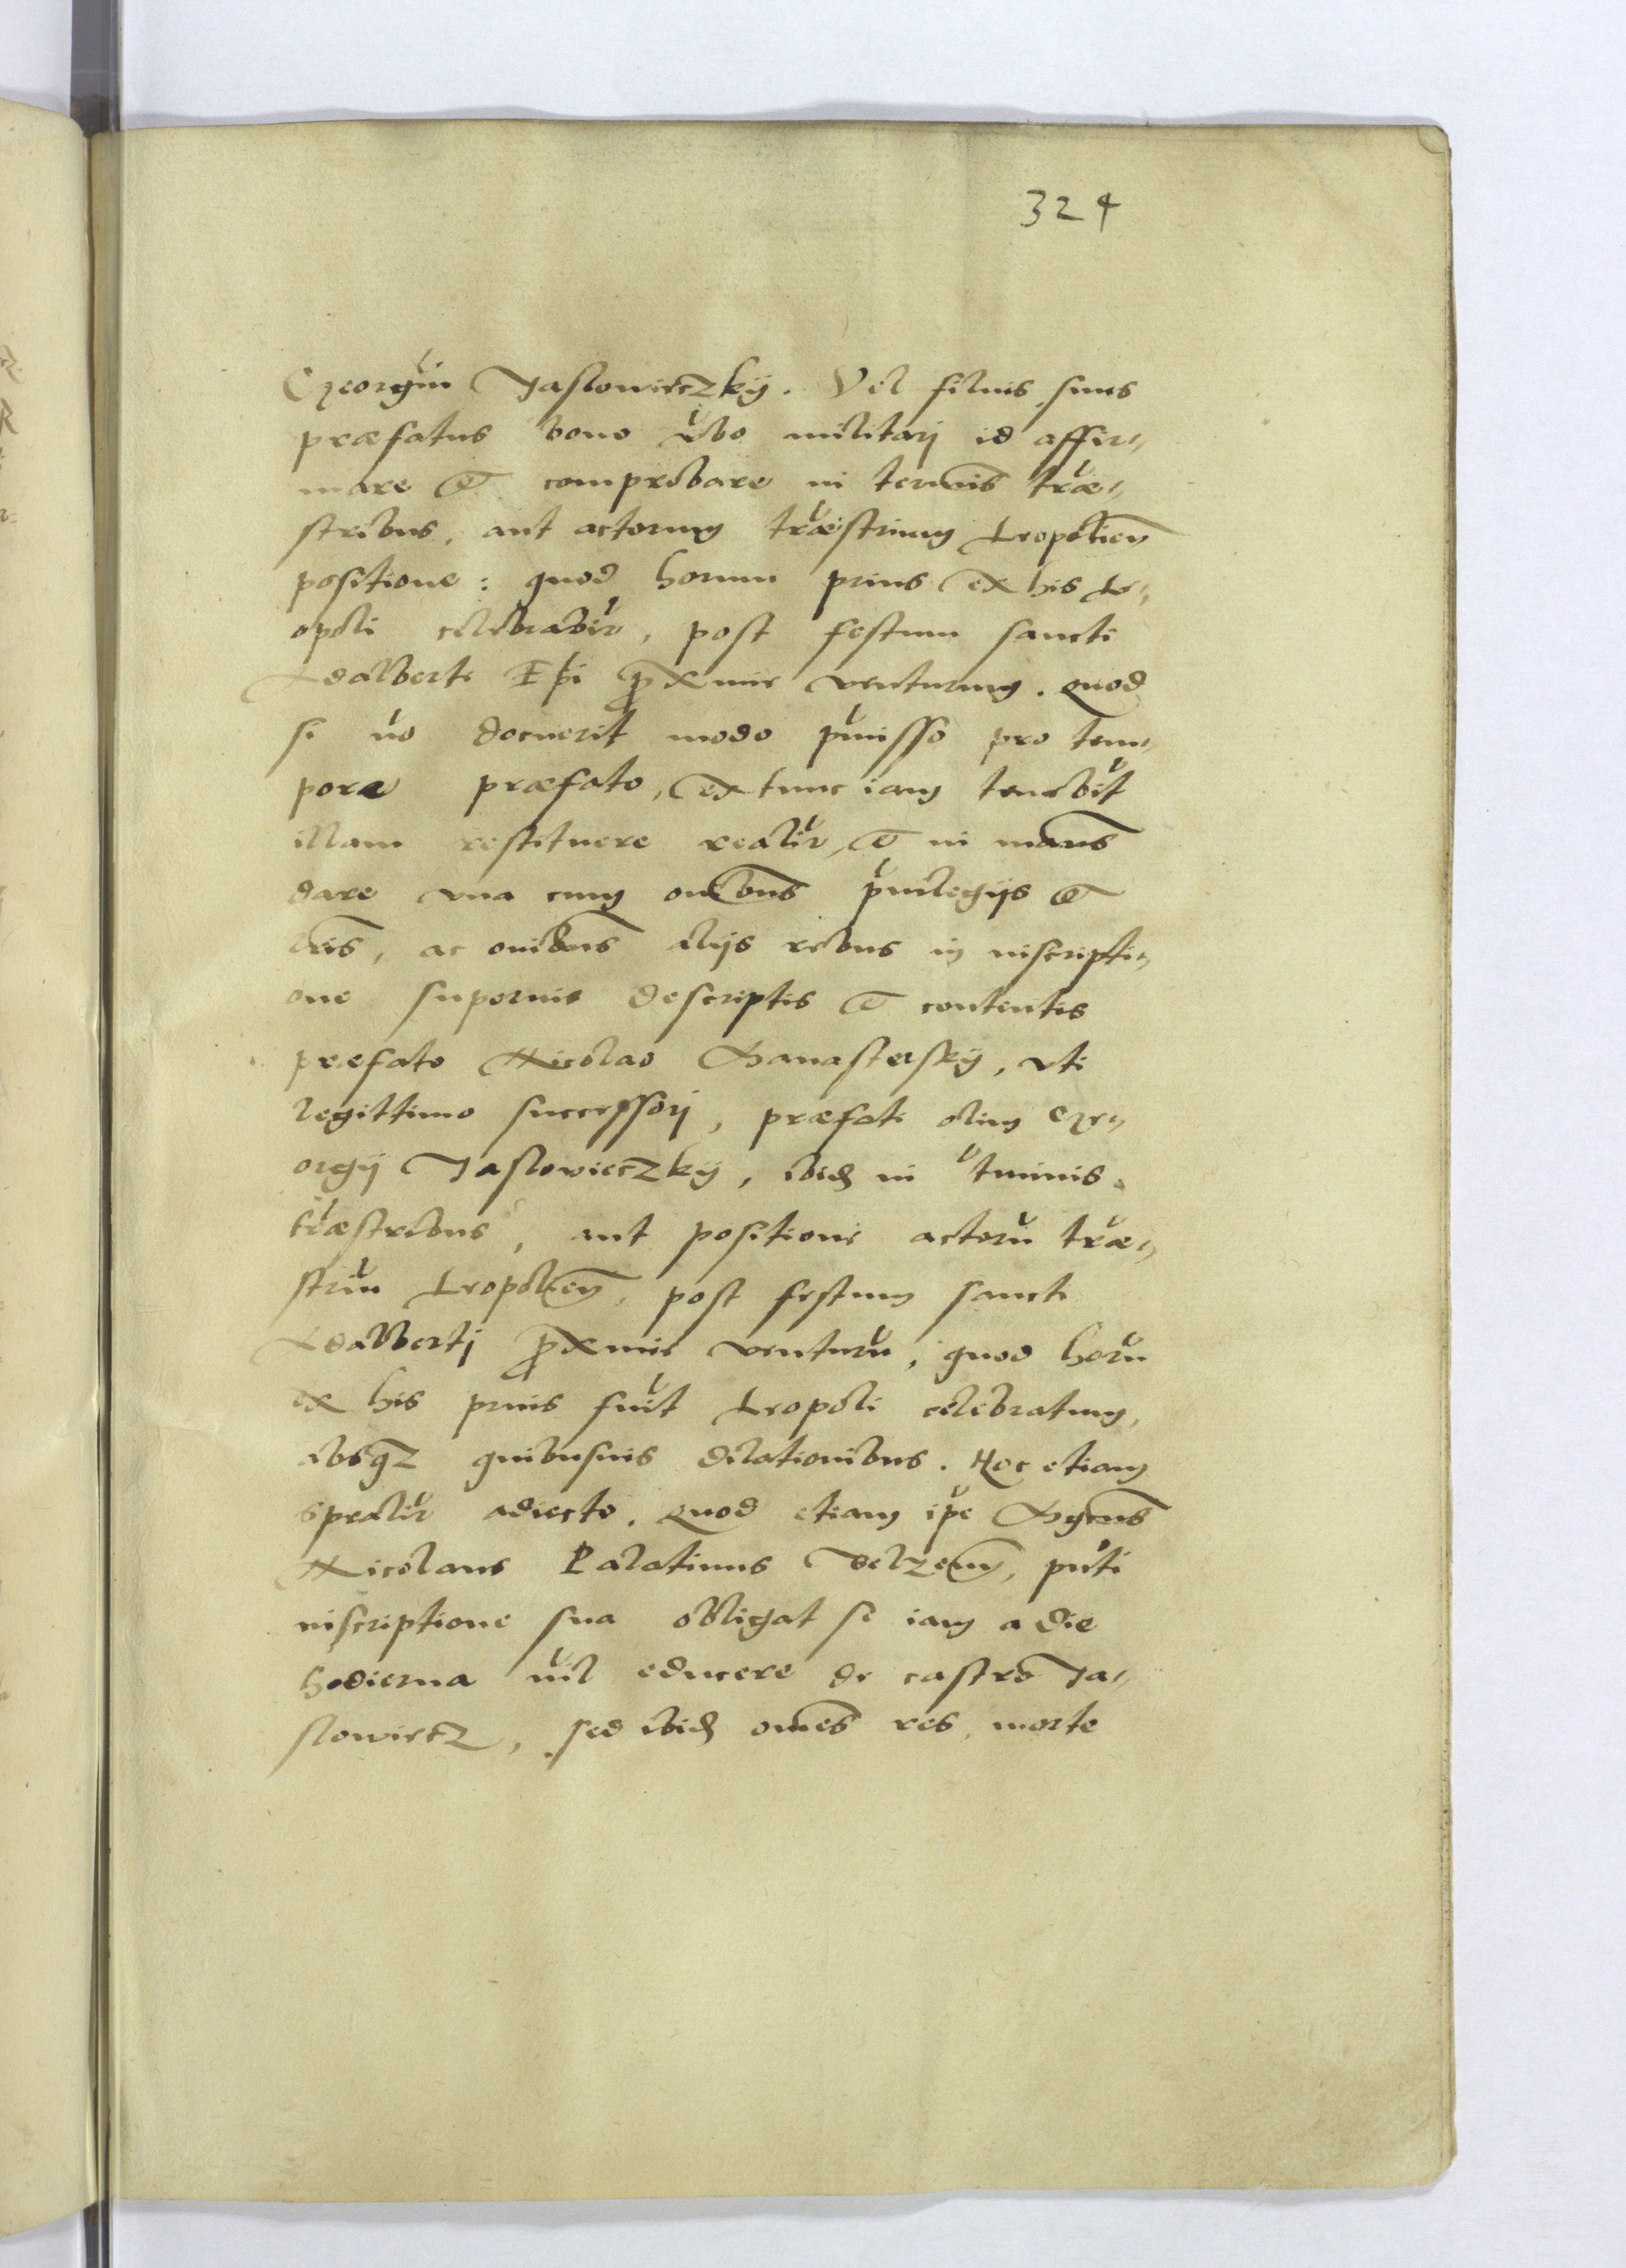 324
Georgiu Jaslowieczkÿ. Vel filius suus
præfatus bono v̆bo militarj id affir„
mare & comprobare in termīs tr̆æ„
stribus, aut actorum tr̆æstrium Leopolien̄
positione: quod horum prius ex his Le„
opoli celebrabit̆r, post festum sancti
Adalberti Epī proxime venturum. Quod
si v̆o docuerit modo p̆misso pro tem„
pore præfato, ex tunc iam tenebit̆
illam restituere realit̆r, & in manus
dare vna cum oībus p̆uilegijs &
lr̄is, ac oībus alijs rebus in inscripti„
one superius descriptis & contentis
præfato Nicolao Synaferskÿ, vti
legittimo successorj, præfati olim Ge„
orgij Jaslowieczkÿ, ibid in t̆minis
tr̆æstribus, aut positione actorŭ tr̆æ„
striŭ Leopolien̄, post festum sancti
Adalbertj proxime venturŭ, quod horŭ
ex his prius fuĭt Leopoli celebratum,
absqz quibusuis dilationibus. Hoc etiam
spealit̆r adiecto. Quod etiam ip̆e Mgcus
Nicolaus Palatinus Belzen̄, pn̆ti
inscriptione sua obligat se iam a die
hodierna nĭl educere de castro Ja„
slowiecz, sed ibid omēs res, morte